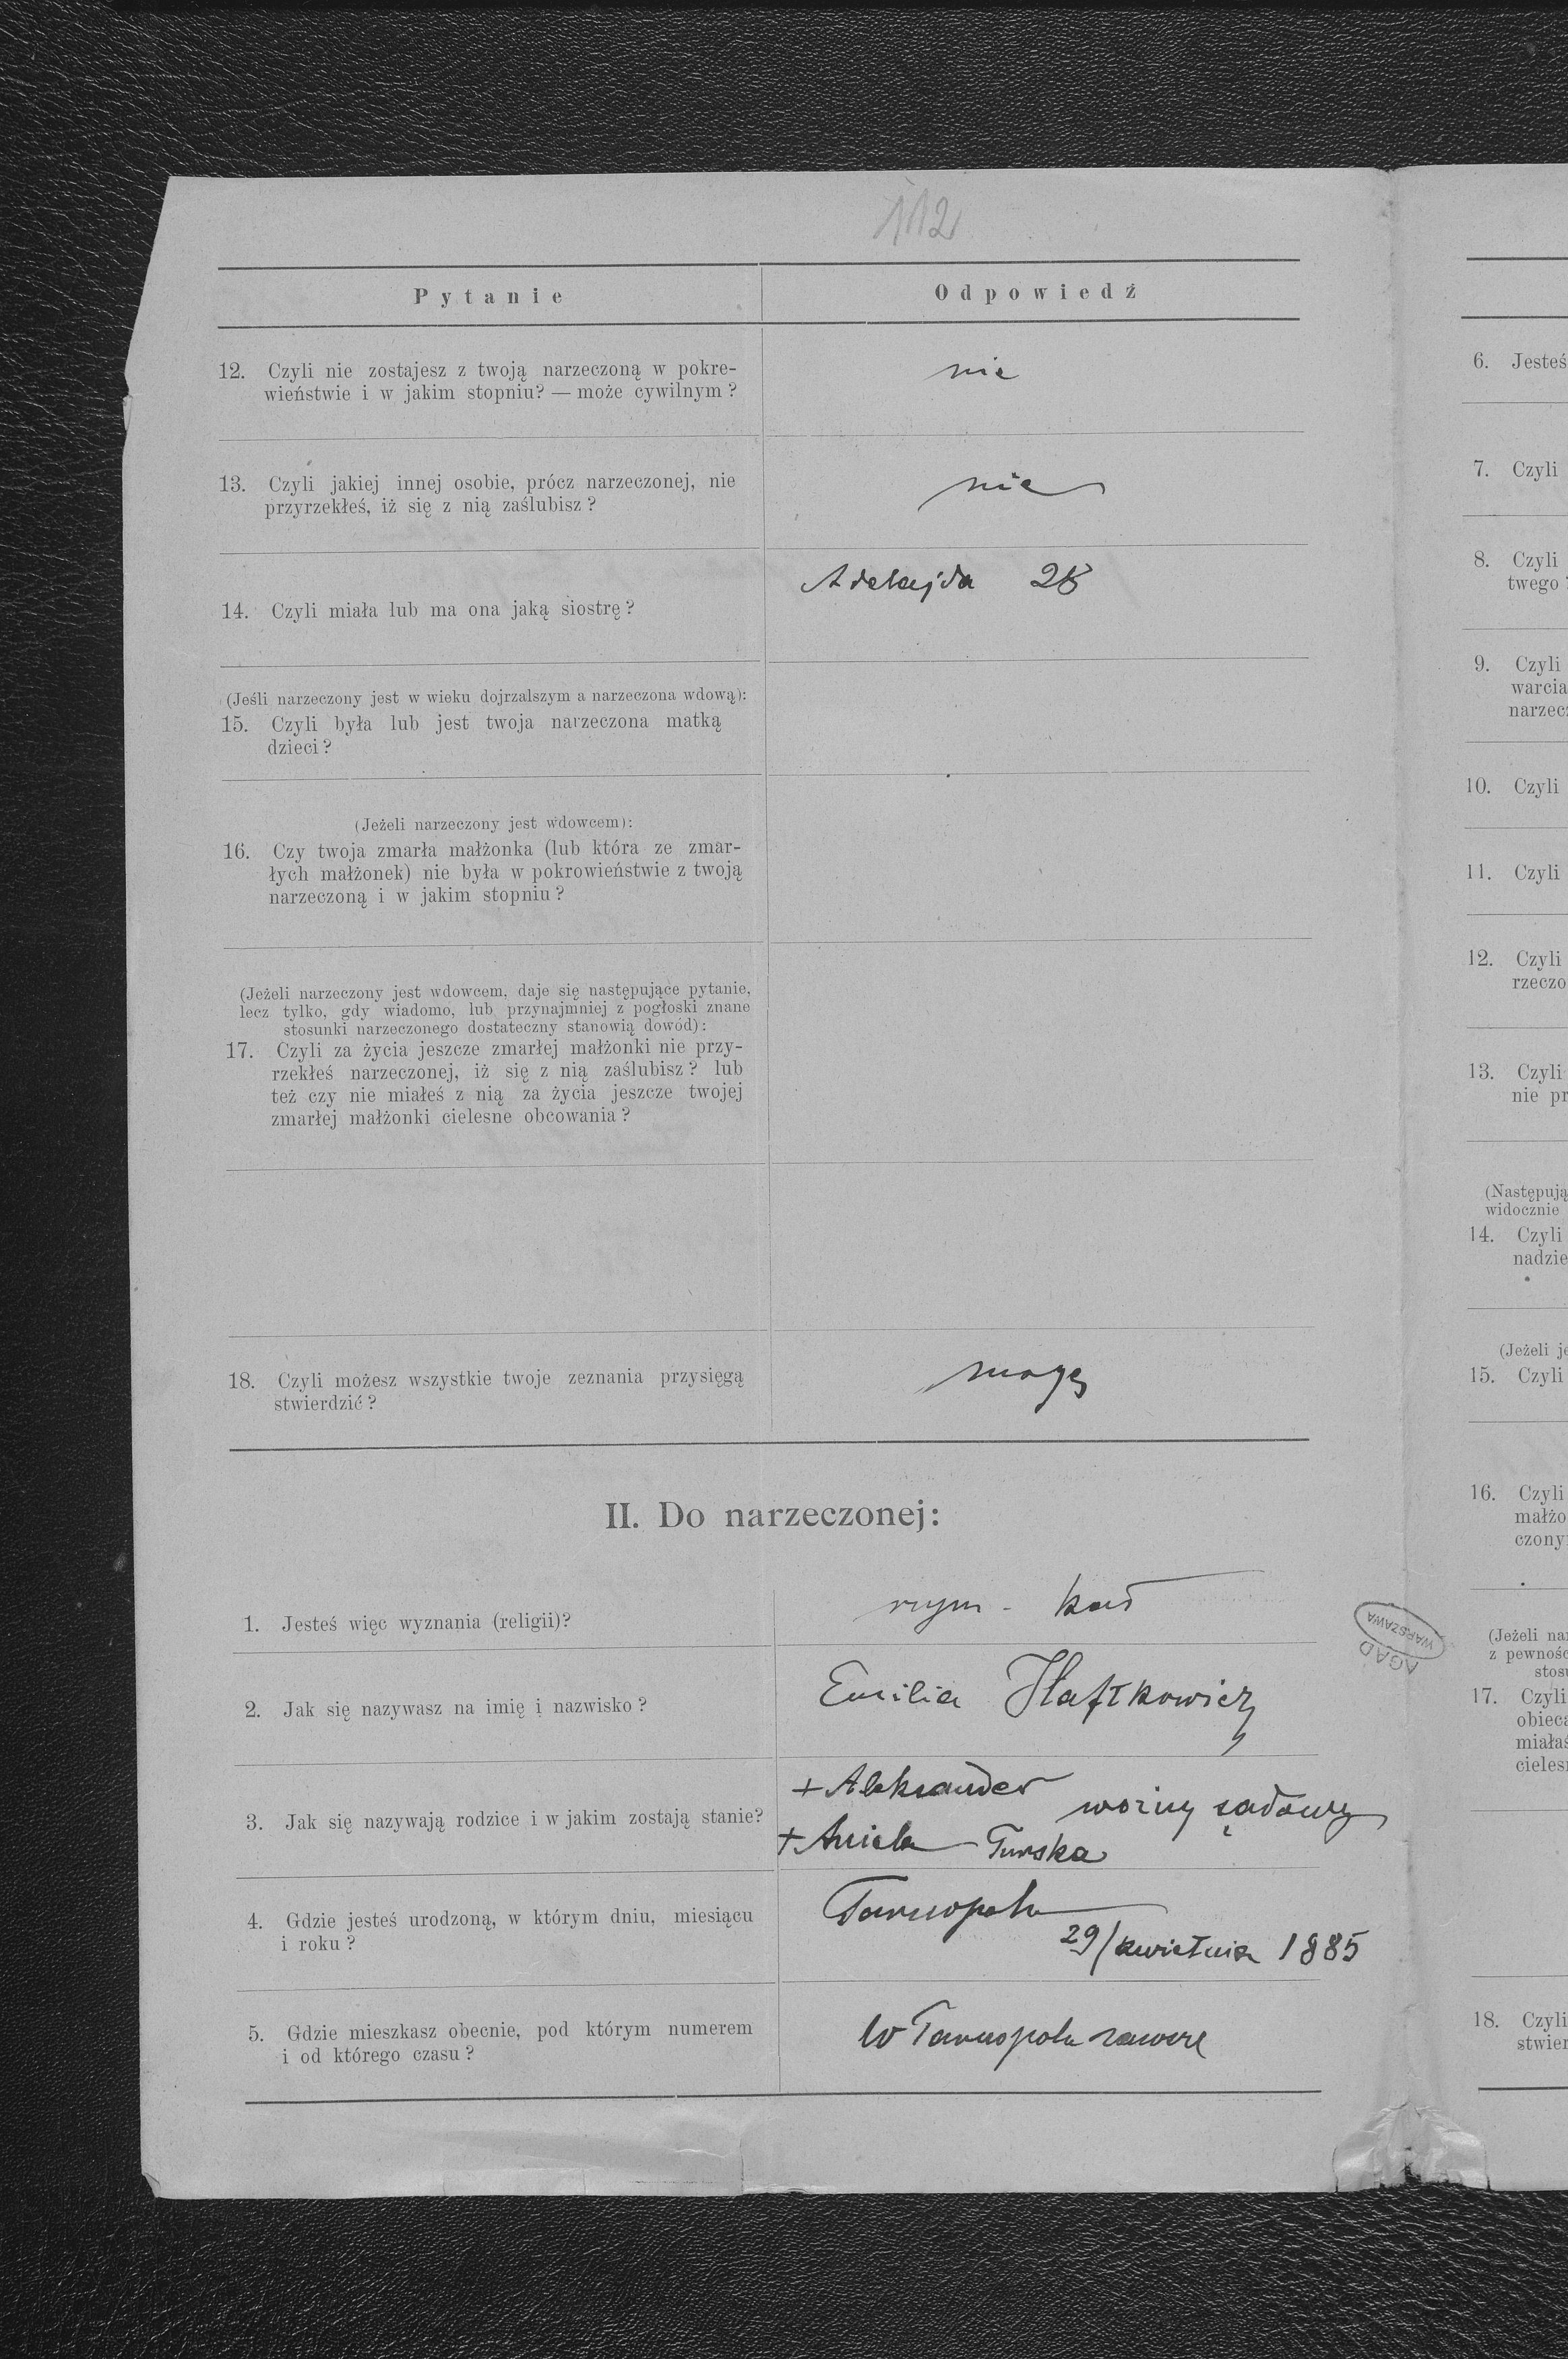 112
Pytanie
Odpowiedź
12. Czyli nie zostajesz z twoją narzeczoną w pokre-
wieństwie i w jakim stopniu? — może cywilnym?
nie
13. Czyli jakiej innej osobie, prócz narzeczonej, nie
przyrzekłeś, iż się z nią zaślubisz?
nie
14. Czyli miała lub ma ona jaką siostrę?
Adelajda 28
(Jeśli narzeczony jest w wieku dojrzalszym a narzeczona wdową):
15. Czyli była lub jest twoja narzeczona matką
dzieci?
(Jeżeli narzeczony jest wdowcem):
16. Czy twoja zmarła małżonka (lub która ze zmar-
łych małżonek) nie była w pokrowieństwie z twoją
narzeczoną i w jakim stopniu?
(Jeżeli narzeczony jest wdowcem, daje się następujące pytanie,
lecz tylko, gdy wiadomo, lub przynajmniej z pogłoski znane
stosunki narzeczonego dostateczny stanowią dowód):
17. Czyli za życia jeszcze zmarłej małżonki nie przy-
rzekłeś narzeczonej, iż się z nią zaślubisz? lub
też czy nie miałeś z nią za życia jeszcze twojej
zmarłej małżonki cielesne obcowania?
18. Czyli możesz wszystkie twoje zeznania przysięgą
stwierdzić?
mogę
II. Do narzeczonej:
1. Jesteś więc wyznania (religii)?
rzym - kat
2. Jak się nazywasz na imię i nazwisko?
Emilia Haftkowicz
3. Jak się nazywają rodzice i w jakim zostają stanie?
+ Aleksander woźny sądowy
+ Aniela Turska
4. Gdzie jesteś urodzoną, w którym dniu, miesiącu
i roku?
Tarnopolu
29/kwietnia 1885
5. Gdzie mieszkasz obecnie, pod którym numerem
i od którego czasu?
W Tarnopolu zawsze
AGAD
WARSZAWA
6. Jesteś
7. Czyli
8. Czyli
twego
9. Czyli
warcia
narzec
10. Czyli
11. Czyli
12. Czyli
rzeczo
13. Czyli
nie pr
(Następują
widocznie
14. Czyli
nadzie
(Jeżeli je
15. Czyli
16. Czyli
małżo
czony
(Jeżeli na
z pewnośc
stos
17. Czyli
obieca
miałaś
cieles
18. Czyli
stwier